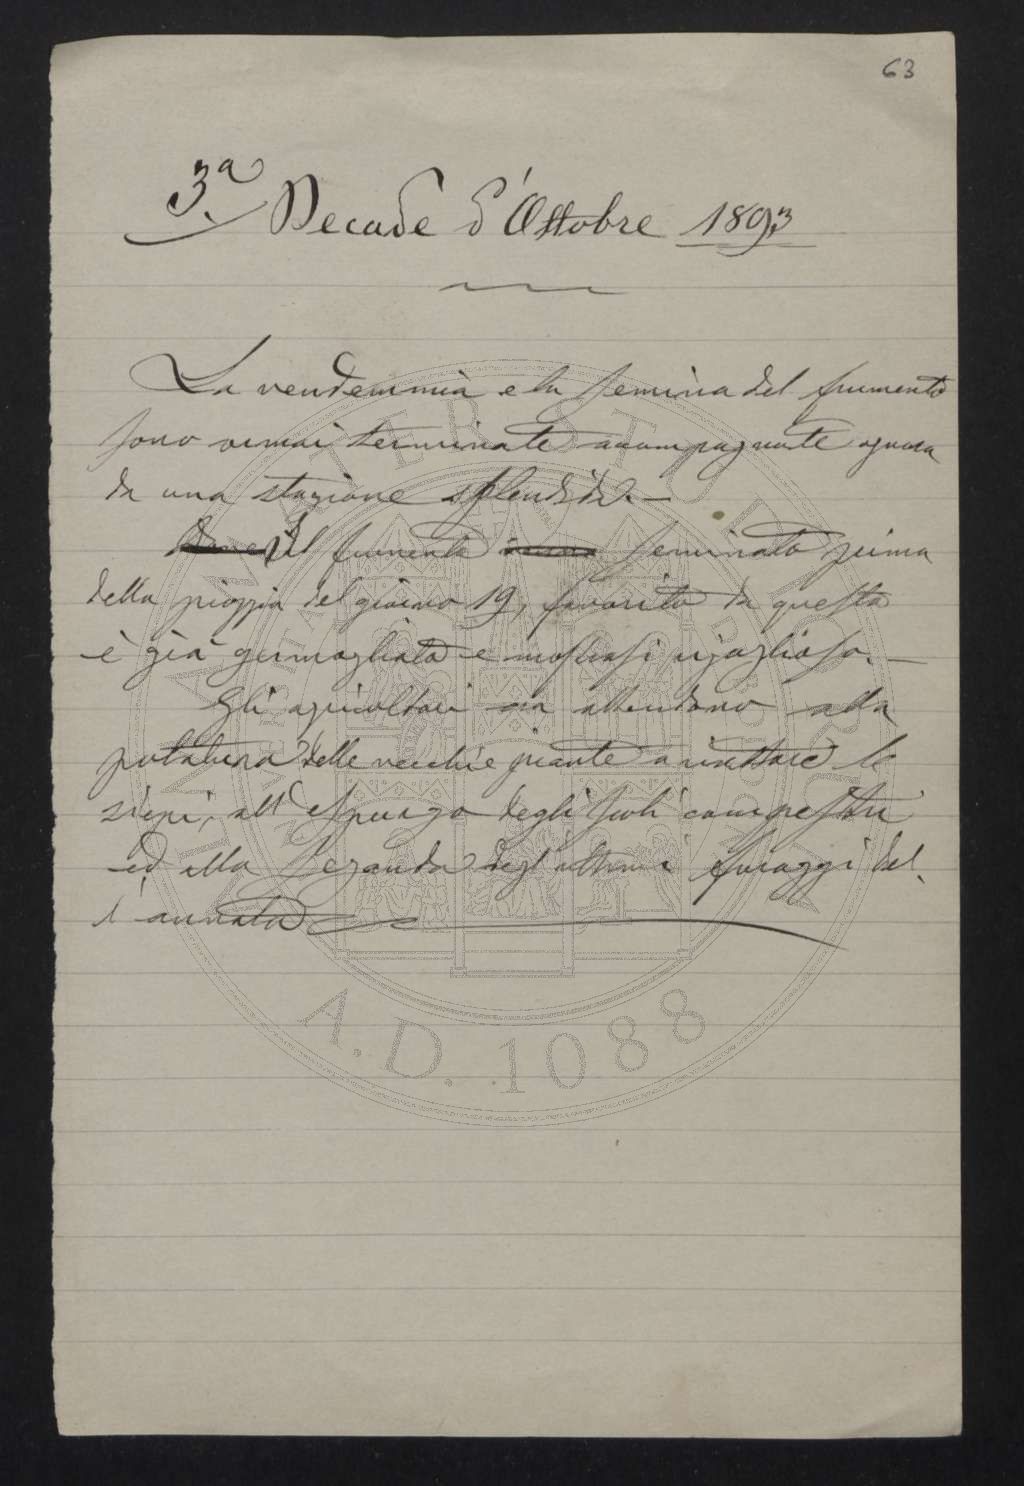 63
3.a Decade d'Ottobre 1893
La vendemmia e la semina del frumento
sono ormai terminate accompagnate ognora
da una stagione splendida. —
Il frumento seminato prima
della pioggia del giorno 19, favorito da questa
è già germogliato e mostrasi rigoglioso. —
Gli agricoltori ora attendono alla
potatura delle vecchie piante a riattare le
siepi, all'espurgo degli scoli campestri
ed alla seganda degl'ultimi foraggi del
l'annata
ALMA MATER STUDIORUM
A.D. 1088